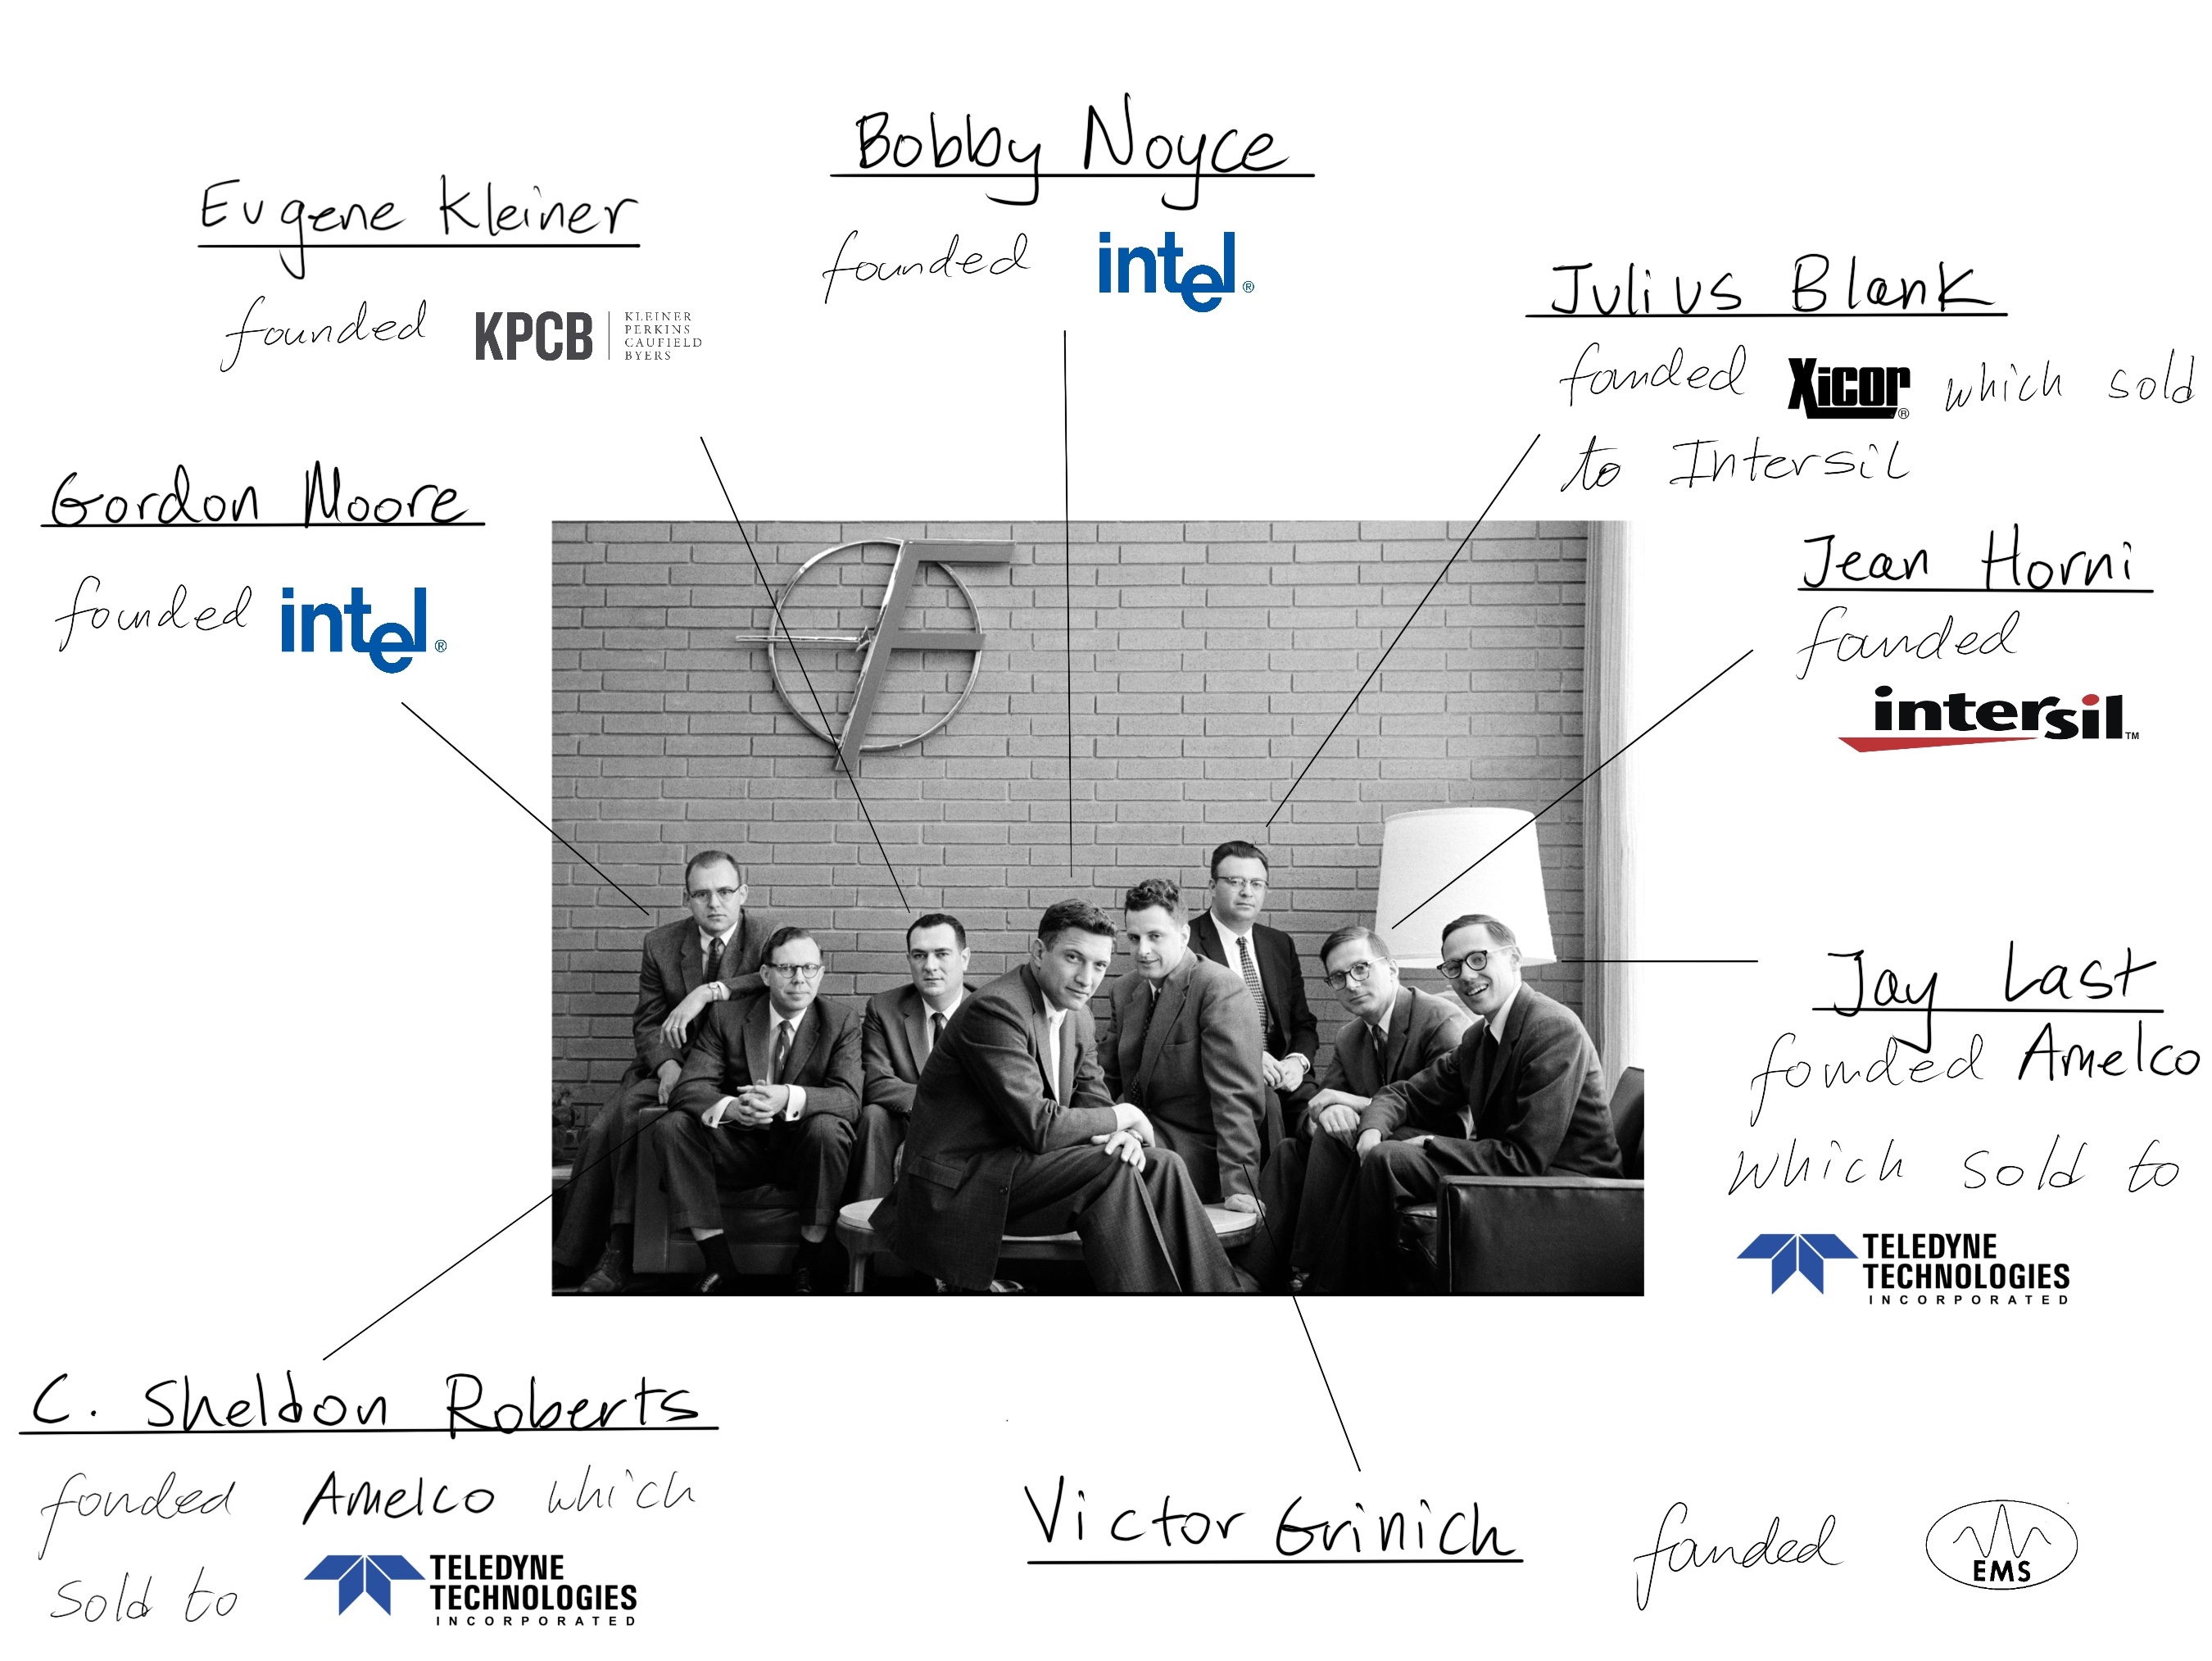 Bobby Noyce
founded intel®
Eugene Kleiner
founded KPCB KLEINER
PERKINS
CAUFIELD
BYERS
Julius Blank
founded Xicor® which sold
to Intersil
Gordon Moore
founded intel®
Jean Horni
founded
intersil™
Jay Last
founded Amelco
which sold to
TELEDYNE
TECHNOLOGIES
INCORPORATED
C. Sheldon Roberts
fonded Amelco which
sold to TELEDYNE
TECHNOLOGIES
INCORPORATED
Victor Grinich founded EMS
F